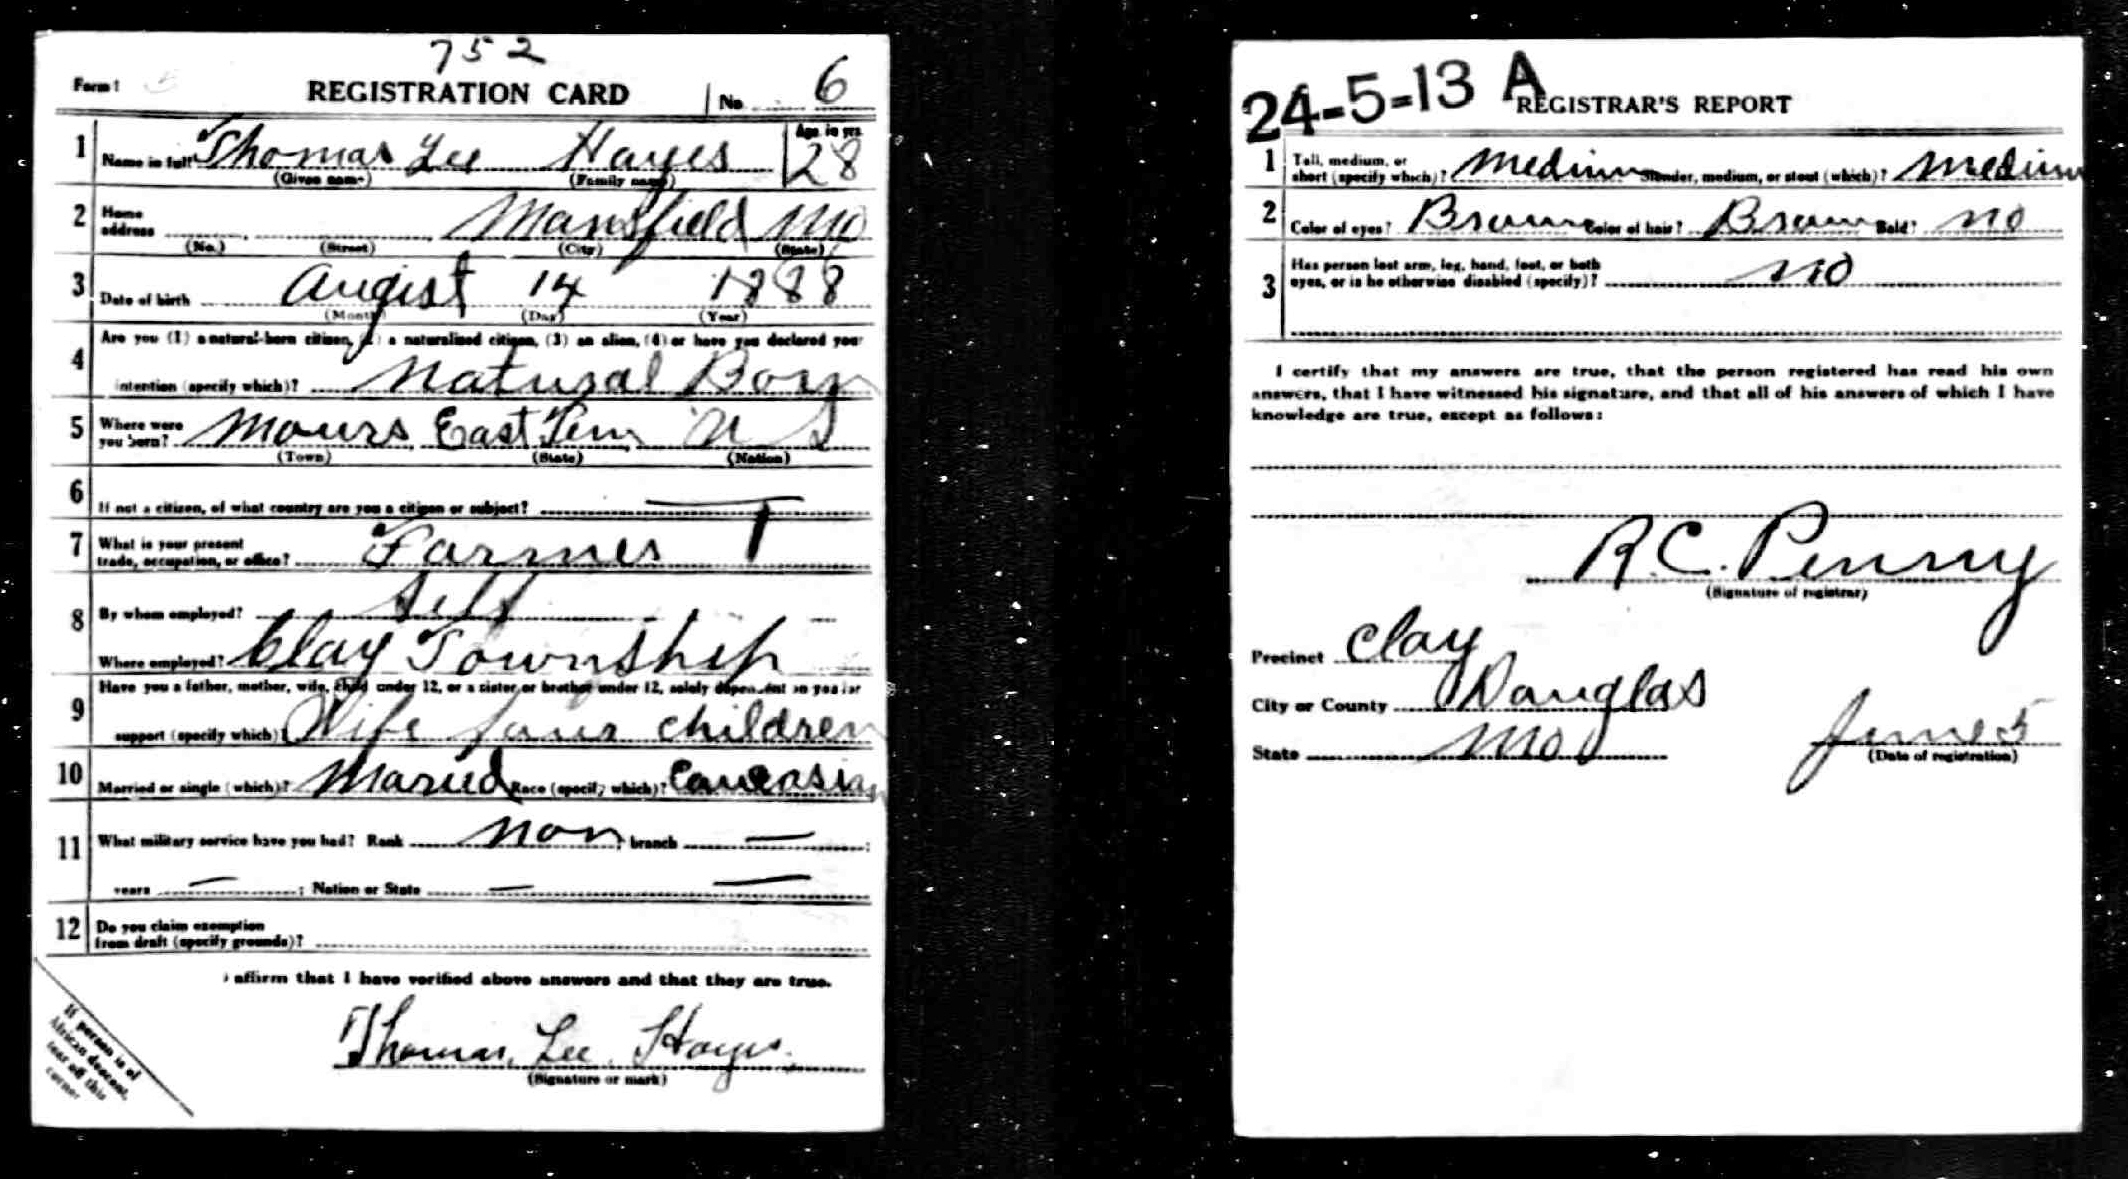 752
Form 1
REGISTRATION CARD No. 6
1 Name in full Thomas Lee Hayes Age, in yrs. 28
(Given name) (Family name)
2 Home address Mansfield Mo
(No.) (Street) (City) (State)
3 Date of birth August 14 1888
(Month) (Day) (Year)
4 Are you (1) a natural-born citizen, (2) a naturalized citizen, (3) an alien, (4) or have you declared your
intention (specify which)? Natural Born
5 Where were you born? Mours East Tenn U S
(Town) (State) (Nation)
6 If not a citizen, of what country are you a citizen or subject?
7 What is your present trade, occupation, or office? Farmer
8 By whom employed? Self
Where employed? Clay Township
9 Have you a father, mother, wife, child under 12, or a sister or brother under 12, solely dependent on you for
support (specify which)? Wife four children
10 Married or single (which)? Maried Race (specify which)? Caucasian
11 What military service have you had? Rank non; branch —;
years —; Nation or State —
12 Do you claim exemption
from draft (specify grounds)?
I affirm that I have verified above answers and that they are true.
Thomas Lee Hayes.
(Signature or mark)
If person is of
African descent,
tear off this
corner
24-5-13 A
REGISTRAR'S REPORT
1 Tall, medium, or short (specify which)? Medium Slender, medium, or stout (which)? Medium
2 Color of eyes? Brown Color of hair? Brown Bald? No
3 Has person lost arm, leg, hand, foot, or both
eyes, or is he otherwise disabled (specify)? No
I certify that my answers are true, that the person registered has read his own
answers, that I have witnessed his signature, and that all of his answers of which I have
knowledge are true, except as follows:
R.C. Penny
(Signature of registrar)
Precinct Clay
City or County Douglas
State Mo June 5
(Date of registration)